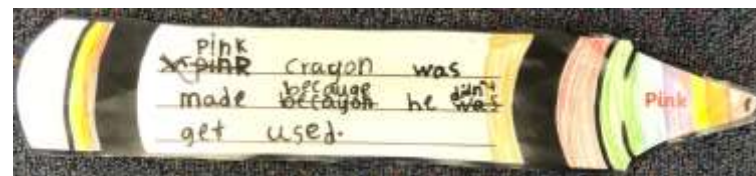 pink
crayon was
made becauge he didn't
get used.
Pink